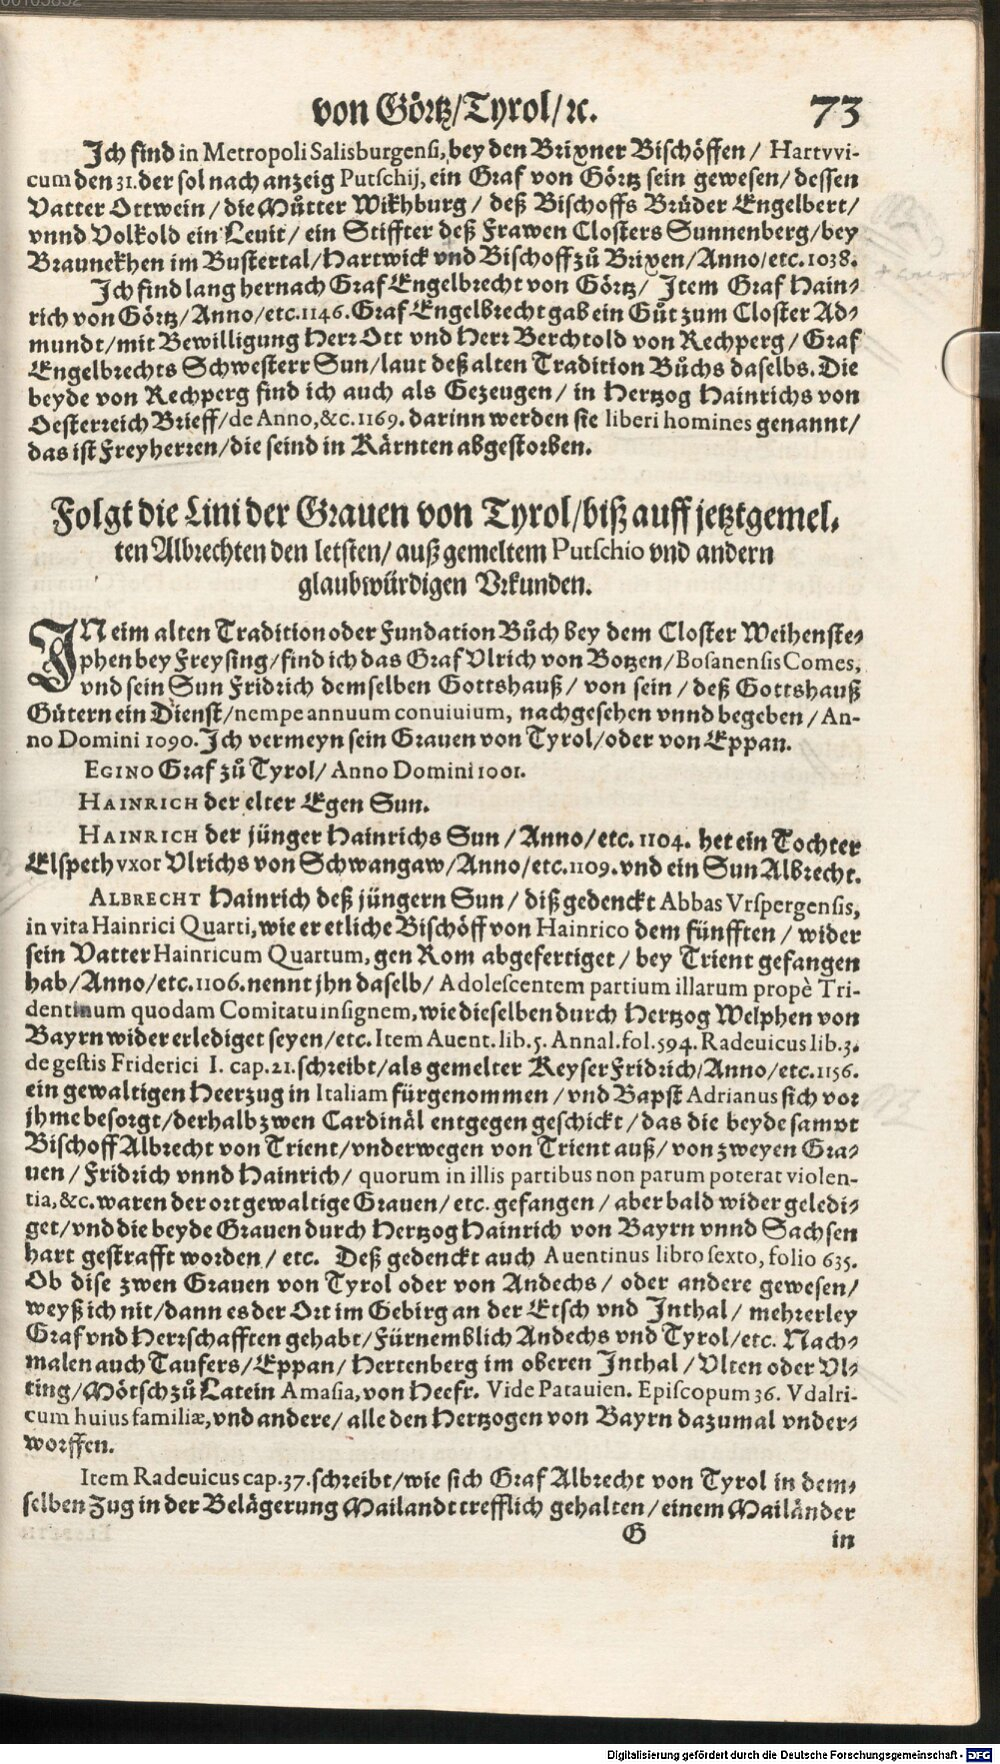 von Görtz/Tyrol/ꝛc. 73
Ich find in Metropoli Salisburgensi, bey den Brixner Bischöffen / Hartvvi-
cum den 31. der sol nach anzeig Putschij, ein Graf von Görtz sein gewesen/ dessen
Vatter Ottwein / die Můtter Wikhburg / deß Bischoffs Brůder Engelbert/
vnnd Volkold ein Levit/ ein Stiffter deß Frawen Closters Sunnenberg/bey
Braunekhen im Bustertal/Hartwick vnd Bischoff zů Brixen/Anno/etc. 1038.
Ich find lang hernach Graf Engelbrecht von Görtz/ Item Graf Hain-
rich von Görtz/Anno/etc. 1146. Graf Engelbrecht gab ein Gůt zum Closter Ad-
mundt/mit Bewilligung Herr Ott vnd Herr Berchtold von Rechperg / Graf
Engelbrechts Schwesterr Sun/laut deß alten Tradition Bůchs daselbs. Die
beyde von Rechperg find ich auch als Gezeugen / in Hertzog Hainrichs von
Oesterreich Brieff/de Anno,&c. 1169. darinn werden sie liberi homines genannt/
das ist Freyherren/die seind in Kärnten abgestorben.
Folgt die Lini der Grauen von Tyrol/biß auff jetztgemel-
ten Albrechten den letsten/ auß gemeltem Putschio vnd andern
glaubwürdigen Vrkunden.
IN eim alten Tradition oder Fundation Bůch bey dem Closter Weihenste-
phen bey Freysing/find ich das Graf Vlrich von Botzen/Bosanensis Comes,
vnd sein Sun Fridrich demselben Gottshauß / von sein / deß Gottshauß
Gütern ein Dienst/nempe annuum conuiuium, nachgesehen vnnd begeben / An-
no Domini 1090. Ich vermeyn sein Grauen von Tyrol/oder von Eppan.
EGINO Graf zů Tyrol/ Anno Domini 1001.
HAINRICH der elter Egen Sun.
HAINRICH der jünger Hainrichs Sun / Anno/etc. 1104. het ein Tochter
Elspeth vxor Vlrichs von Schwangaw/Anno/etc. 1109. vnd ein Sun Albrecht.
ALBRECHT Hainrich deß jüngern Sun / diß gedenckt Abbas Vrspergensis,
in vita Hainrici Quarti, wie er etliche Bischöff von Hainrico dem fünfften / wider
sein Vatter Hainricum Quartum, gen Rom abgefertiget / bey Trient gefangen
hab/Anno/etc. 1106. nennt jhn daselb/ Adolescentem partium illarum propè Tri-
dentinum quodam Comitatu insignem, wie dieselben durch Hertzog Welphen von
Bayrn wider erlediget seyen/etc. Item Auent. lib. 5. Annal. fol. 594. Radeuicus lib. 3.
de gestis Friderici I. cap. 21. schreibt/als gemelter Keyser Fridrich/Anno/etc. 1156.
ein gewaltigen Heerzug in Italiam fürgenommen / vnd Bapst Adrianus sich vor
jhme besorgt/derhalb zwen Cardinäl entgegen geschickt / das die beyde sampt
Bischoff Albrecht von Trient/vnderwegen von Trient auß/ von zweyen Gra-
uen / Fridrich vnnd Hainrich/ quorum in illis partibus non parum poterat violen-
tia,&c. waren der ort gewaltige Grauen/ etc. gefangen / aber bald wider geledi-
get/vnd die beyde Grauen durch Hertzog Hainrich von Bayrn vnnd Sachsen
hart gestrafft worden/ etc. Deß gedenckt auch Auentinus libro sexto, folio 635.
Ob dise zwen Grauen von Tyrol oder von Andechs/ oder andere gewesen/
weyß ich nit/dann es der Ort im Gebirg an der Etsch vnd Inthal/ mehrerley
Graf vnd Herrschafften gehabt/Fürnemblich Andechs vnd Tyrol/etc. Nach-
malen auch Taufers/Eppan/ Hertenberg im oberen Inthal /Vlten oder Vl-
ting/Mötsch zů Latein Amasia, von Heefr. Vide Patauien. Episcopum 36. Vdalri-
cum huius familiæ, vnd andere/ alle den Hertzogen von Bayrn dazumal vnder-
worffen.
Item Radeuicus cap. 37. schreibt/wie sich Graf Albrecht von Tyrol in dem-
selben Zug in der Belägerung Mailandt trefflich gehalten/einem Mailänder
G in
Digitalisierung gefördert durch die Deutsche Forschungsgemeinschaft - DFG